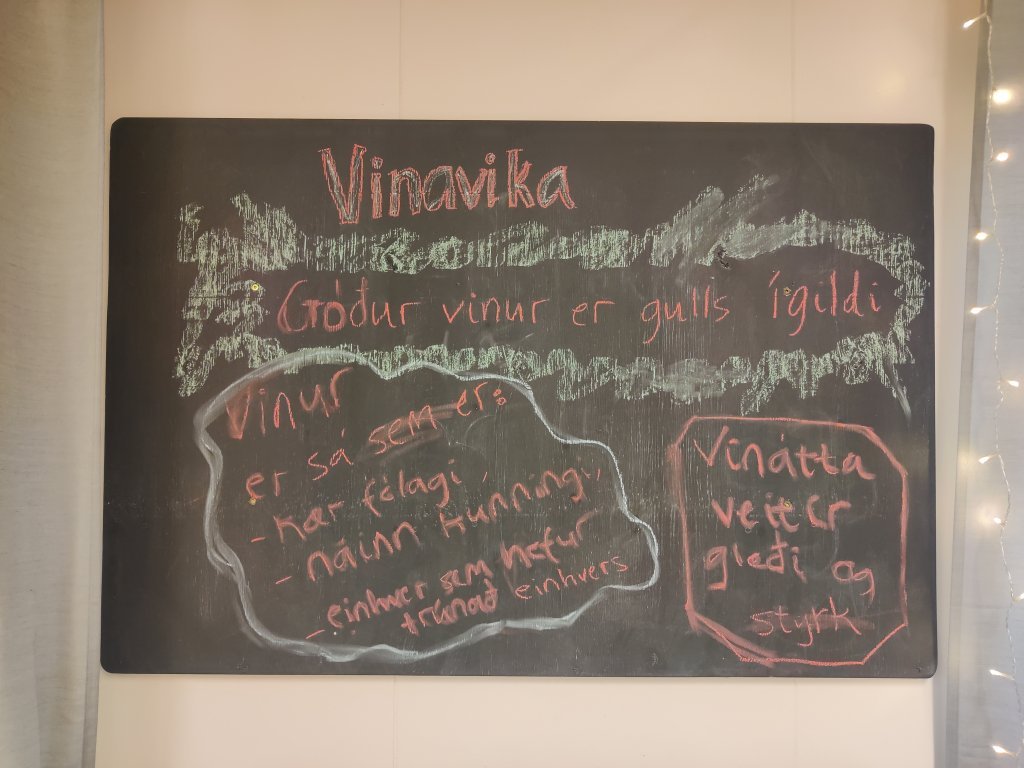 Vinavika
Góður vinur er gulls ígildi
Vinur
er sá sem er:
- kær félagi,
- náinn kunningi,
- einhver sem hefur
trúnað einhvers
Vinátta
veitir
gleði og
styrk